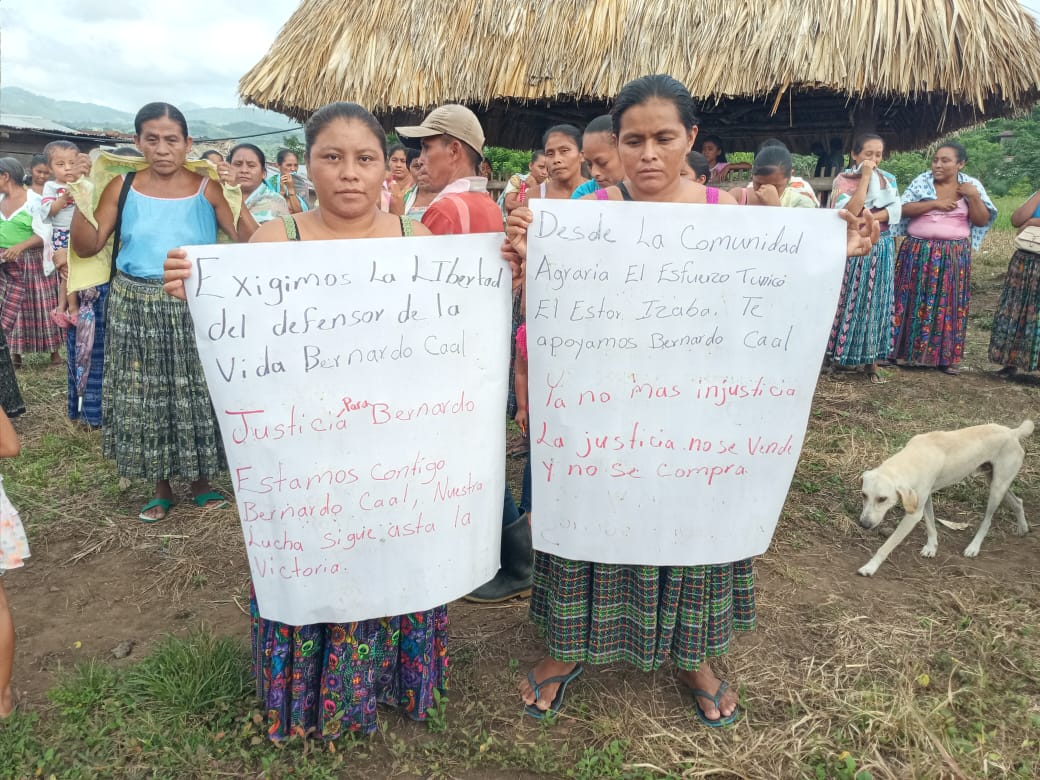 Exigimos La Libertad
del defensor de la
Vida Bernardo Caal
Justicia Para Bernardo
Estamos Contigo
Bernardo Caal, Nuestra
Lucha sigue asta la
Victoria.
Desde La Comunidad
Agraria El Esfuerzo Tunico
El Estor Izabal. Te
apoyamos Bernardo Caal
Ya no mas injusticia
La justicia no se Vende
Y no Se Compra.